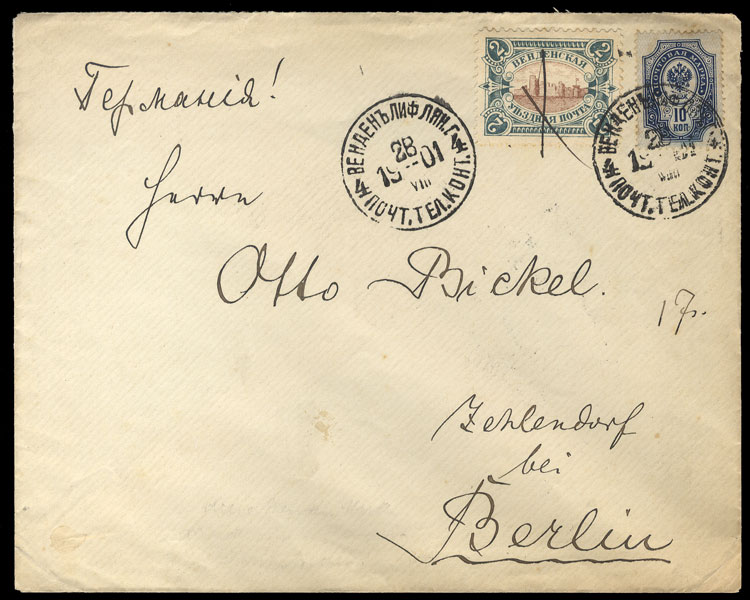 2 2
ВЕНДЕНСКАЯ
УѢЗДНАЯ ПОЧТА
2 2
ПОЧТОВАЯ МАРКА
10
КОП
ВЕНДЕНЪ ЛИФЛЯН. Г.
28
19 01
VIII
ПОЧТ. ТЕЛ. КОНТ.
ВЕНДЕНЪ
19
ПОЧТ. ТЕЛ. КОНТ.
Германія!
Herrn
Otto Bickel.
17.
Zehlendorf
bei
Berlin